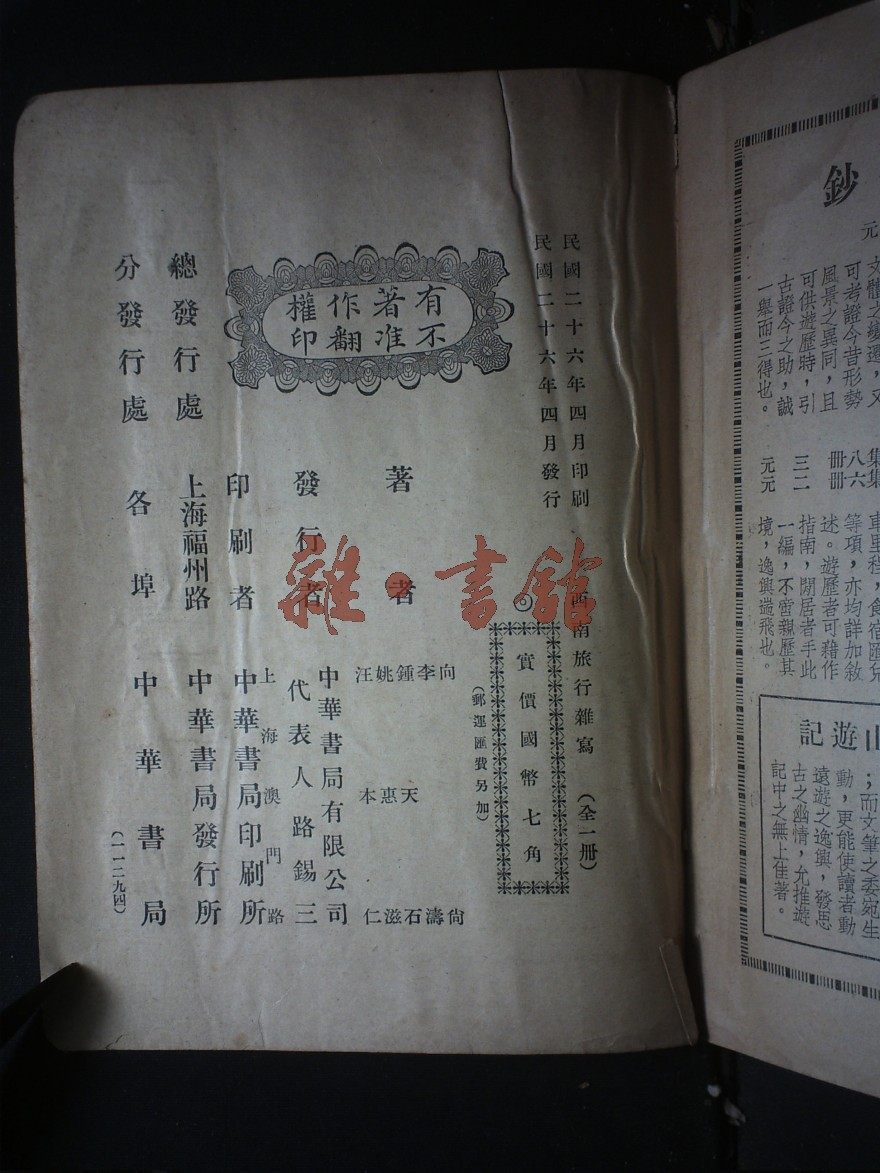 鈔
元
文體之變遷，又
可考證今昔形勢
風景之異同，且
可供遊歷時，引
古證今之助，誠
一舉而三得也。
集集
八六
冊冊
三二
元元
車里程，食宿匯兌
等項，亦均詳加敘
述。遊歷者可藉作
指南，閒居者手此
一編，不啻親歷其
境，逸興遄飛也。
山遊記
；而文筆之委宛生
動，更能使讀者動
遠遊之逸興，發思
古之幽情，允推遊
記中之無上佳著。
民國二十六年四月印刷
民國二十六年四月發行
有著作權
不准翻印
西南旅行雜寫（全一冊）
實價國幣七角
（郵運匯費另加）
著者
向尚
李濤
鍾天石
姚惠滋
汪本仁
發行者 中華書局有限公司
代表人路錫三
印刷者 上海澳門路
中華書局印刷所
總發行處 上海福州路 中華書局發行所
分發行處 各埠 中華書局
（一一二九四）
雜·書館